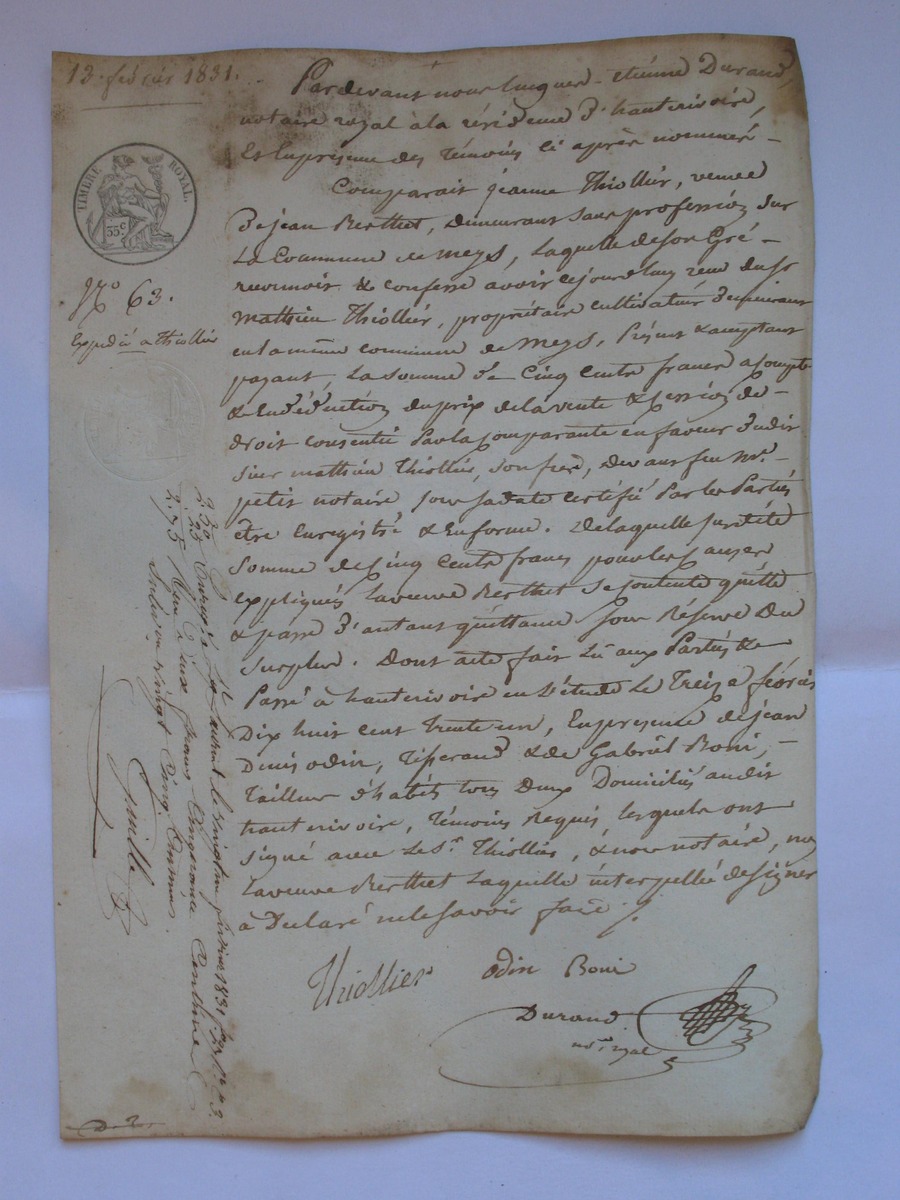 13. février 1831.
Pardevant nous Jacques-étienne Durand,
notaire royal à la résidence d'hauterivoire,
Et En présence des témoins ci après nommés –
Comparait jéanne Thiollier, veuve
De jean Berthet, demeurant sans profession sur
La Commune de Meys, Laquelle de son Gré –
reconnoit & confesse avoir cejourd'huy reçu du sr
Mathieu Thiollier, propriétaire cultivateur demeurant
en la même commune de Meys, Présent & acceptant
payant, La Somme de Cinq Cents francs a Compte
& En déduction du prix de la vente & cession de –
droit consentie Par la Comparante en faveur dudit
Sieur mathieu Thiollier, son frère, devant feu Mr.
petit notaire sous sa date certifié Par les Parties
être Enregistré & En forme. De laquelle susdite
Somme de Cinq Cents francs pour les Causes
Expliqués La veuve Berthet se Contente quitte
& passe d'autant quittance sous Réserve du
Surplus. Dont acte fait Lû aux Parties &
Passé à hauterivoire en L'étude Le Treize février
Dix huit cent trente un, En présence de jean
Denis odin, Tisserand & de Gabriël Boni, –
Tailleur d'habits tous deux Domiciliés audit
hauterivoire, témoins Requis lesquels ont
Signé avec Le Sr. Thiollier, & nous notaire, non
La veuve Berthet Laquelle interpellée de signer
à Déclaré ne le savoir faire.
Thiollier
odin Boni
Durand
not. royal
TIMBRE ROYAL.
35 c
No. 63.
Expedié a thiollier
2. 50
25
2. 75
Enregistré à St Laurent le vingt février 1831
Reçu Deux francs Cinquante Centimes
Subvention vingt Cinq Centimes.